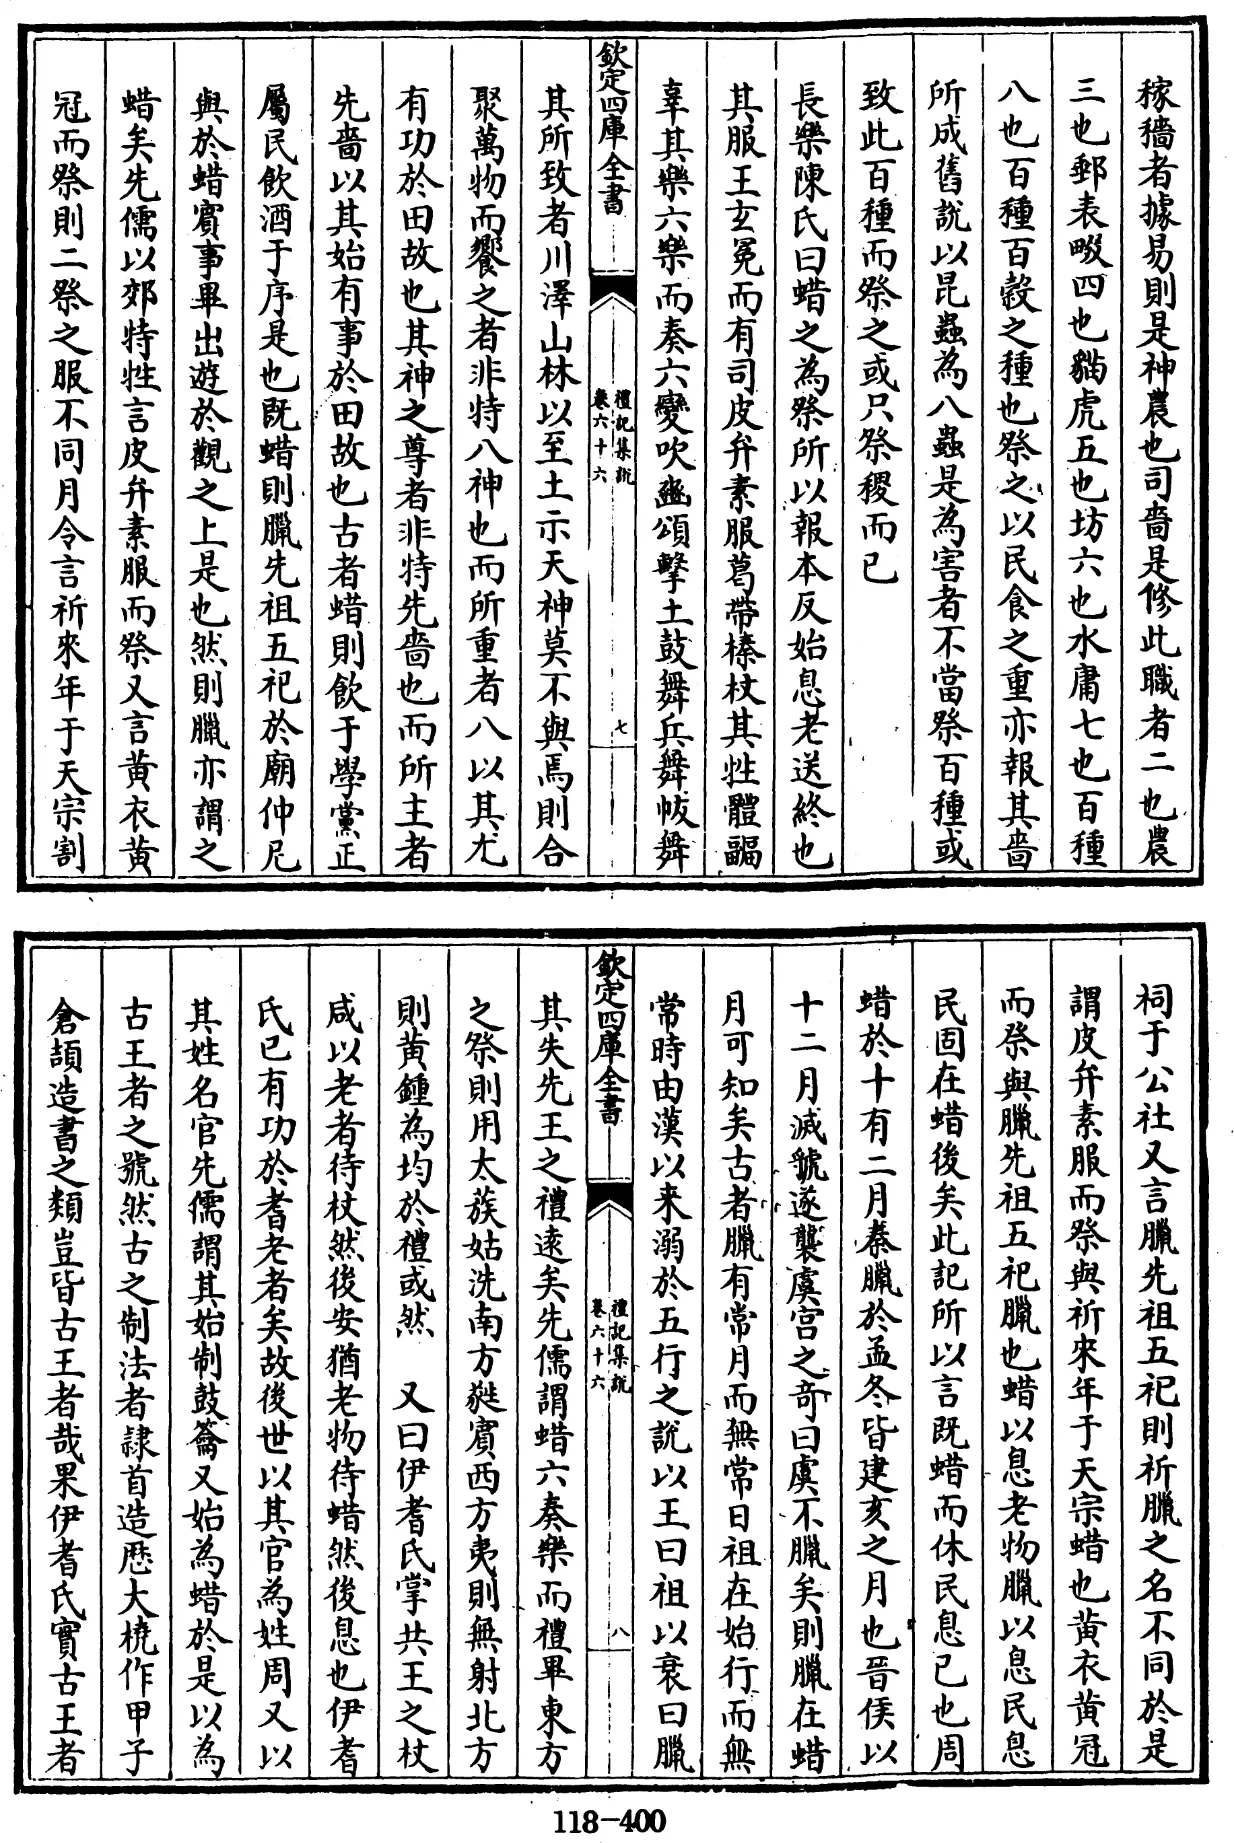 稼穡者據易則是神農也司嗇是修此職者二也農
三也郵表畷四也貓虎五也坊六也水庸七也百種
八也百種百穀之種也祭之以民食之重亦報其嗇
所成舊說以昆蟲為八蟲是為害者不當祭百種或
致此百種而祭之或只祭稷而已
長樂陳氏曰蜡之為祭所以報本反始息老送終也
其服王玄冕而有司皮弁素服葛帶榛杖其牲體疈
辜其樂六樂而奏六變吹豳頌擊土鼓舞兵舞帗舞
欽定四庫全書
禮記集說
卷六十六
七
其所致者川澤山林以至土示天神莫不與焉則合
聚萬物而饗之者非特八神也而所重者八以其尤
有功於田故也其神之尊者非特先嗇也而所主者
先嗇以其始有事於田故也古者蜡則飲于學黨正
屬民飲酒于序是也既蜡則臘先祖五祀於廟仲尼
與於蜡賓事畢出遊於觀之上是也然則臘亦謂之
蜡矣先儒以郊特牲言皮弁素服而祭又言黄衣黄
冠而祭則二祭之服不同月令言祈來年于天宗割
祠于公社又言臘先祖五祀則祈臘之名不同於是
謂皮弁素服而祭與祈來年于天宗蜡也黄衣黄冠
而祭與臘先祖五祀臘也蜡以息老物臘以息民息
民固在蜡後矣此記所以言既蜡而休民息已也周
蜡於十有二月秦臘於孟冬皆建亥之月也晉侯以
十二月滅虢遂襲虞宫之奇曰虞不臘矣則臘在蜡
月可知矣古者臘有常月而無常日祖在始行而無
常時由漢以来溺於五行之說以王曰祖以衰曰臘
欽定四庫全書
禮記集說
卷六十六
八
其失先王之禮逺矣先儒謂蜡六奏樂而禮畢東方
之祭則用太蔟姑洗南方蕤賓西方夷則無射北方
則黄鍾為均於禮或然　又曰伊耆氏掌共王之杖
咸以老者待杖然後安猶老物待蜡然後息也伊耆
氏已有功於耆老者矣故後世以其官為姓周又以
其姓名官先儒謂其始制鼓籥又始為蜡於是以為
古王者之號然古之制法者隸首造厯大橈作甲子
倉頡造書之類豈皆古王者哉果伊耆氏實古王者
118-400